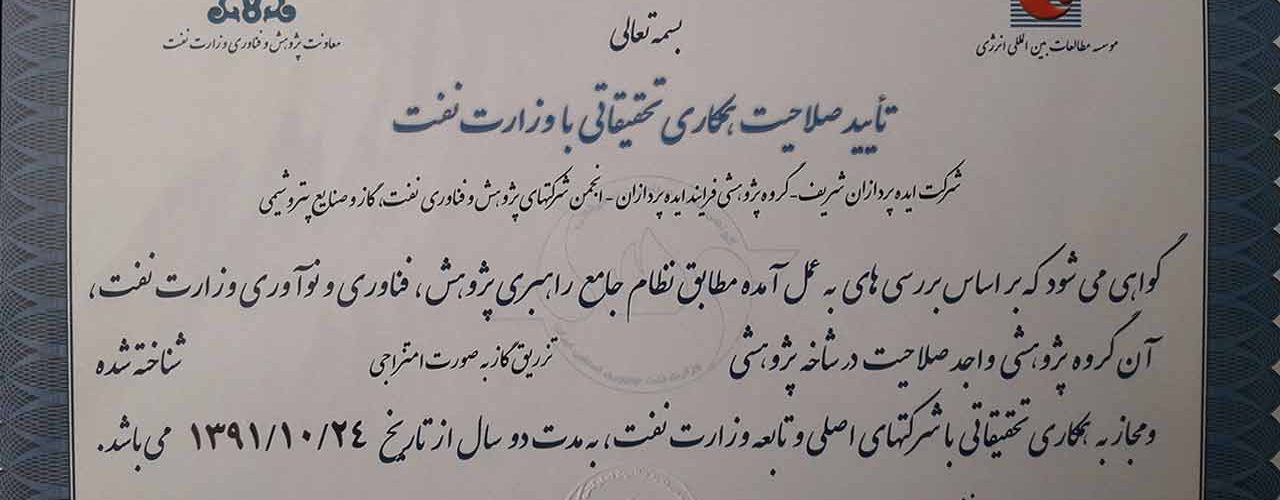 بسمه تعالی
موسسه مطالعات بین المللی انرژی
معاونت پژوهش و فناوری وزارت نفت
تأیید صلاحیت همکاری تحقیقاتی با وزارت نفت
شرکت ایده پردازان شریف - گروه پژوهشی فرایند ایده پردازان - انجمن شرکتهای پژوهش و فناوری نفت، گاز و صنایع پتروشیمی
گواهی می شود که بر اساس بررسی های به عمل آمده مطابق نظام جامع راهبری پژوهش، فناوری و نوآوری وزارت نفت،
آن گروه پژوهشی واجد صلاحیت در شاخه پژوهشی تزریق گاز به صورت امتزاجی شناخته شده
و مجاز به همکاری تحقیقاتی با شرکتهای اصلی و تابعه وزارت نفت، به مدت دو سال از تاریخ ۱۳۹۱/۱۰/۲۴ می باشد.